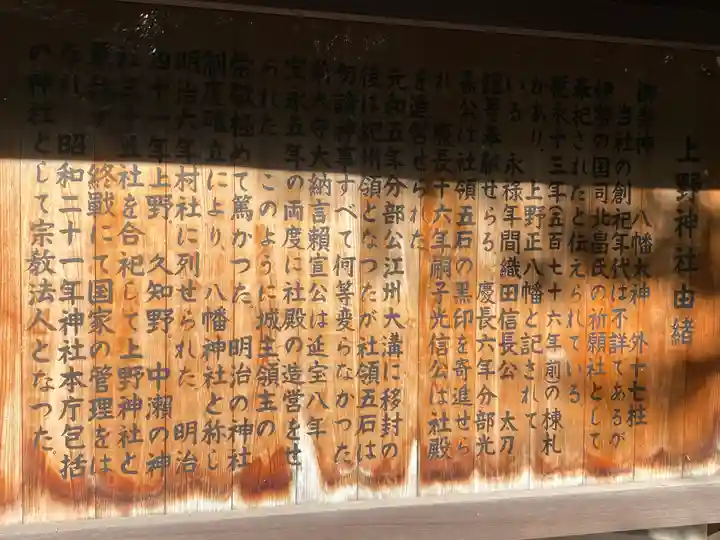 上野神社由緒
御祭神 八幡大神 外十七柱
当社の創祀年代は不詳であるが
伊勢の国司北畠氏の祈願社として
奉祀されたと伝えられている
応永十三年五百七十六年前の棟札
があり 上野正八幡と記されて
いる 永禄年間織田信長公 太刀
鎧等奉献せらる 慶長六年分部光
嘉公は社領五石の黒印を寄進せら
れ 慶長十六年嗣子光信公は社殿
を造営せられた
元和五年分部公江州大溝に移封の
後は紀州領となつたが社領五石は
勿論神事すべて何等変らなかつた
大納言頼宣公は延宝八年
宝永五年の両度に社殿の造営をせ
られた このように城主領主の
崇敬極めて篤かつた 明治の神社
制度確立により 八幡神社と称し
明治六年村社に列せられた 明治
四十一年上野 久知野 中瀬の神
社三十五社を合祀して上野神社と
終戦にて国家の管理をは
なれ 昭和二十一年神社本庁包括
の神社として宗教法人となつた。